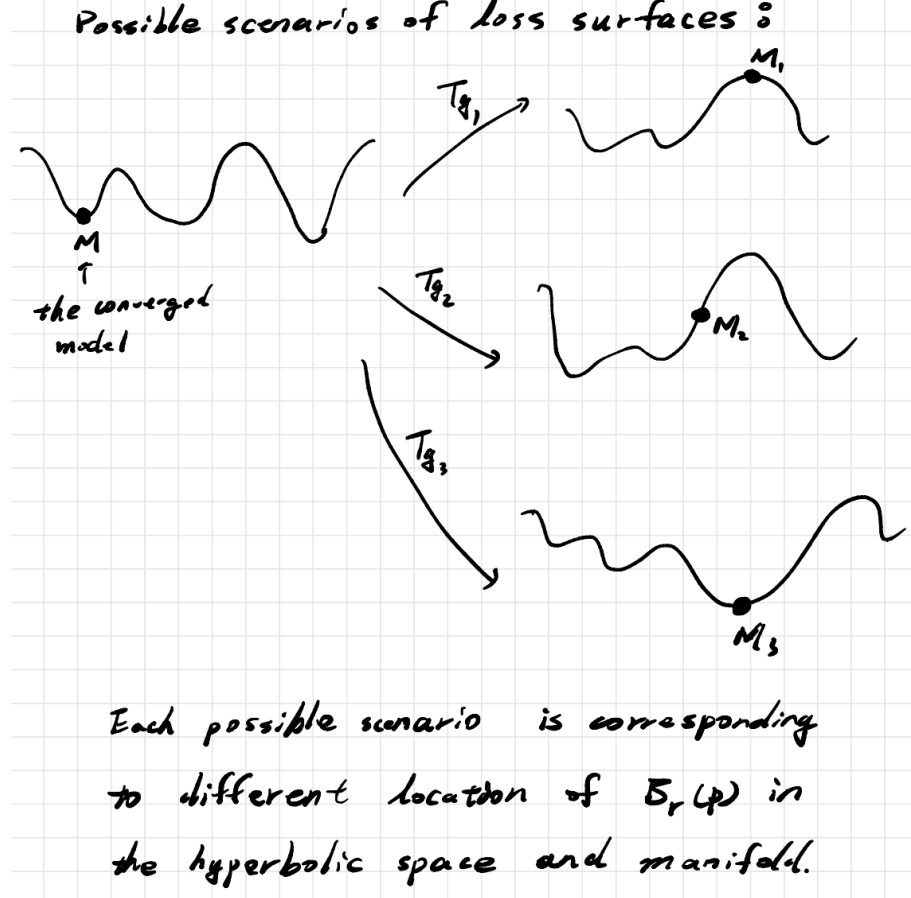 Possible scenarios of loss surfaces :
M₁
Tg₁
M
↑
the converged
model
Tg₂
M₂
Tg₃
M₃
Each possible scenario is corresponding
to different location of B̄ᵣ(p) in
the hyperbolic space and manifold.